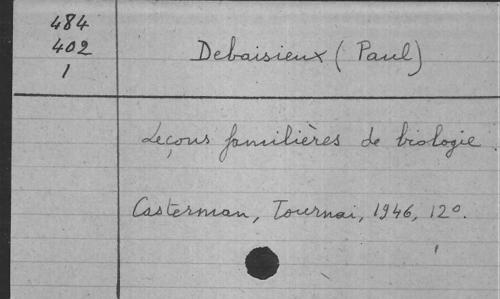 484
402
1
Debaisieux (Paul)
Leçons familières de biologie.
Casterman, Tournai, 1946, 12º.